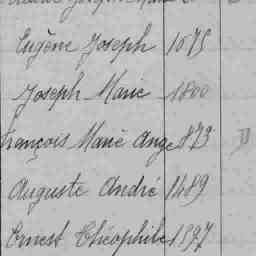 Eugène Joseph 1075
Joseph Marie 1800
François Marie Ange 873
Auguste André 1489
Ernest Théophile 1397